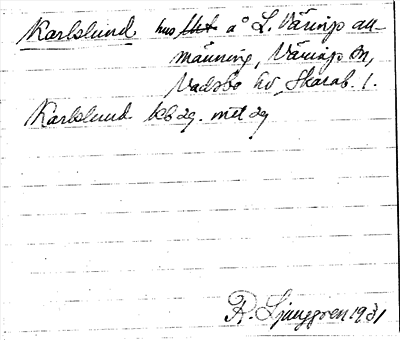 Karlslund hus å L. Väringe all-
männing, Väringe sn,
Vadsbo hd, Skarab. l.
Karlslund
R. Ljunggren 1931